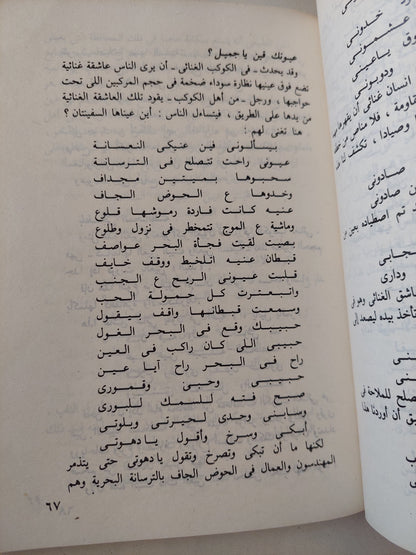 عيونك فين ياجميل ؟
وقد يحدث - فى الكوكب الغنائى - أن يرى الناس عاشقة غنائية
تضع فوق عينيها نظارة سوداء ضخمة فى حجم المركبين اللى تحت
حواجبها ، ورجل - من أهل الكوكب - يقود تلك العاشقة الغنائية
من يدها على الطريق ، فيتساءل الناس : أين عيناها السفينتان ؟
هنا تغنى لهم :
بيسألونى فين عنيكى النعسانة
عيونى راحت تتصلح فى الترسانة
سحبوها بميتين مجداف
وخدوها ع الحوض الجاف
عنيه كانت فاردة رموشها قلوع
وماشية ع الموج تتمخطر فى نزول وطلوع
بصيت لقيت فجأة البحر عواصف
قبطان عنيه اتلخبط ووقف خايف
قلبت عيونى الريح ع الجنب
وانبعترت كل حمولة الحب
وسمعت قبطانها واقف بيقول
حبيبك وقع فى البحر الغول
حبيبى اللى كان راكب فى العين
راح فى البحر راح آيا عين
حبيبى وحبى وقمورى
صبح فته للسمك للبورى
وسابنى وحدى لحيرتى وبلوتى
أبكى وسرخ وأقول يادهوتى
لكنها ما أن تبكى وتصرخ وتقول يادهوتى حتى يتذمر
المهندسون والعمال فى الحوض الجاف بالترسانة البحرية وهم
٦٧
خدونى
ياعينى
ودوبونى
صادونى
صادونى
عجابى
ودارى